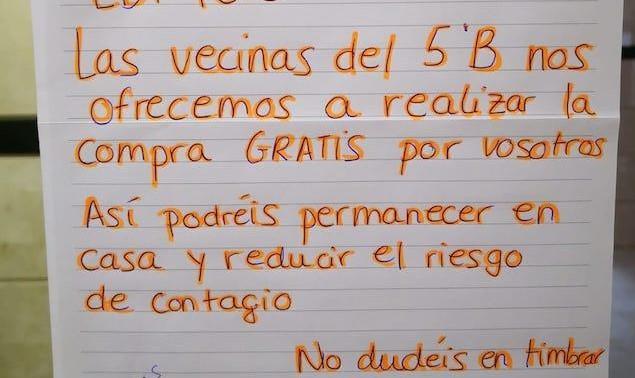 Las vecinas del 5ºB nos
ofrecemos a realizar la
compra GRATIS por vosotros
Así podréis permanecer en
casa y reducir el riesgo
de contagio
No dudéis en timbrar